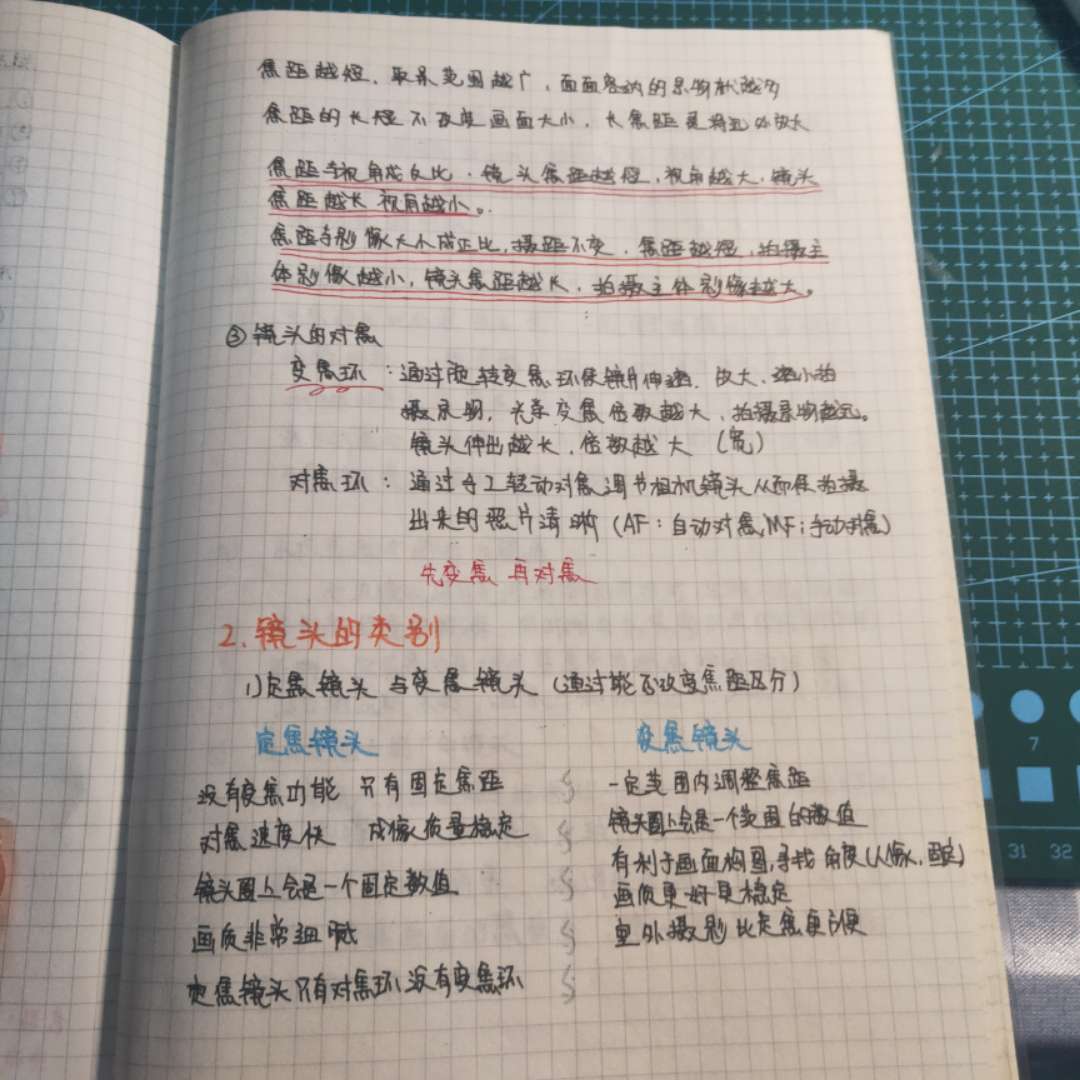 焦距越短，取景范围越广，画面容纳的景物就越多
焦距的长短不改变画面大小，长焦距是将远处放大
焦距与视角成反比．镜头焦距越短，视角越大．镜头
焦距越长 视角越小。
焦距与影像大小成正比，摄距不变．焦距越短，拍摄主
体影像越小，镜头焦距越长，拍摄主体影像越大。
③镜头的对焦
变焦环：通过旋转变焦环使镜片伸缩．放大．缩小拍
摄景物，光学变焦倍数越大，拍摄景物越远。
镜头伸出越长，倍数越大
对焦环：通过手工转动对焦调节相机镜头从而使拍摄
出来的照片清晰（AF：自动对焦，MF：手动对焦）
先变焦 再对焦
2.镜头的类别
1)定焦镜头 与变焦镜头（通过能否改变焦距区分）
定焦镜头 变焦镜头
没有变焦功能 只有固定焦距
对焦速度快 成像质量稳定
镜头圈上会是一个固定数值
画质非常细腻
定焦镜头只有对焦环 没有变焦环
一定范围内调整焦距
镜头圈上会是一个范围的数值
有利于画面构图，寻找角度（人像，
画质更好更稳定
室外摄影比定焦更方便
7
31 32